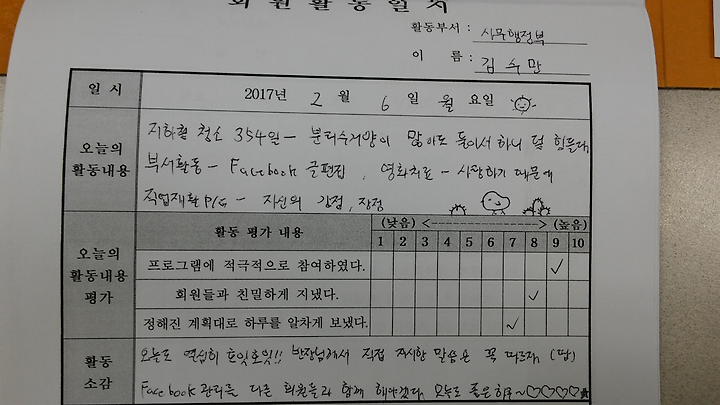 회원활동일지
활동부서 : 사무행정부
이 름 : 김수만
일 시 2017년 2 월 6 일 월 요일
오늘의 활동내용
지하철 청소 354일 - 분리수거양이 많아도 둘이서 하니 덜 힘들다
부서활동 - Facebook 글편집, 영화치료 - 사랑하기 때문에
직업재활 P/G - 자신의 강점, 장점
오늘의 활동내용 평가
활동 평가 내용 (낮음) <--------------------> (높음)
1 2 3 4 5 6 7 8 9 10
프로그램에 적극적으로 참여하였다. ✓
회원들과 친밀하게 지냈다. ✓
정해진 계획대로 하루를 알차게 보냈다. ✓
활동 소감
오늘도 열심히 호잇호잇!! 반장님께서 직접 지시한 말씀은 꼭 따르자 (땀)
Facebook 관리를 다른 회원들과 함께 해야겠다. 오늘도 좋은하루~♡♡♡♡★